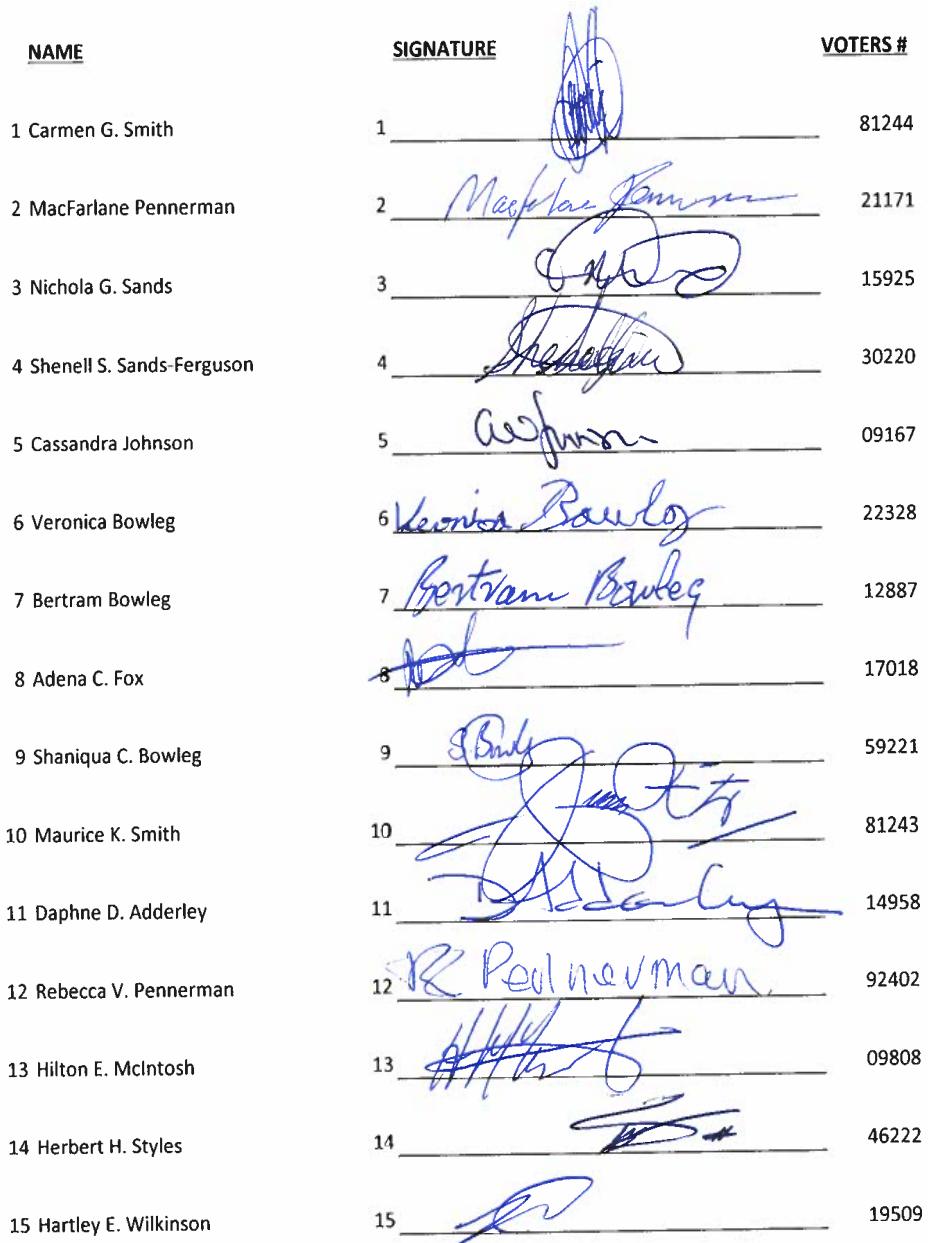 NAME SIGNATURE VOTERS #
1 Carmen G. Smith 1 81244
2 MacFarlane Pennerman 2 MacFarlane Pennerman 21171
3 Nichola G. Sands 3 15925
4 Shenell S. Sands-Ferguson 4 30220
5 Cassandra Johnson 5 09167
6 Veronica Bowleg 6 Veronica Bowleg 22328
7 Bertram Bowleg 7 Bertram Bowleg 12887
8 Adena C. Fox 8 17018
9 Shaniqua C. Bowleg 9 59221
10 Maurice K. Smith 10 81243
11 Daphne D. Adderley 11 D Adderley 14958
12 Rebecca V. Pennerman 12 Pennerman 92402
13 Hilton E. McIntosh 13 09808
14 Herbert H. Styles 14 46222
15 Hartley E. Wilkinson 15 19509